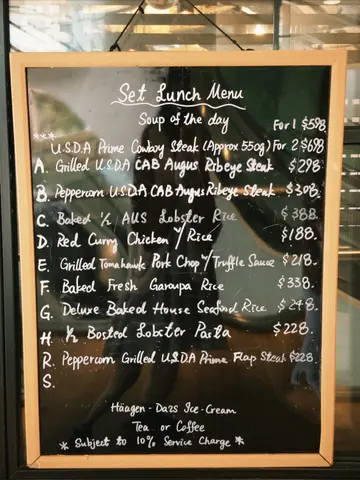 Set Lunch Menu
Soup of the day
For 1 $598.
*** U.S.D.A Prime Cowboy Steak (Approx 550g) For 2 $698
A. Grilled U.S.D.A CAB Augus Ribeye Steak $298.
B. Peppercorn U.S.D.A CAB Augus Ribeye Steak $308.
C. Baked ½ AUS Lobster Rice $388.
D. Red Curry Chicken w/ Rice $188.
E. Grilled Tomahawk Pork Chop w/ Truffle Sauce $218.
F. Baked Fresh Garoupa Rice $338.
G. Deluxe Baked House Seafood Rice $248.
H. ½ Bosted Lobster Pasta $228.
R. Peppercorn Grilled U.S.D.A Prime Flap Steak $228.
S.
Häagen-Dazs Ice-Cream
Tea or Coffee
* Subject to 10% Service Charge *